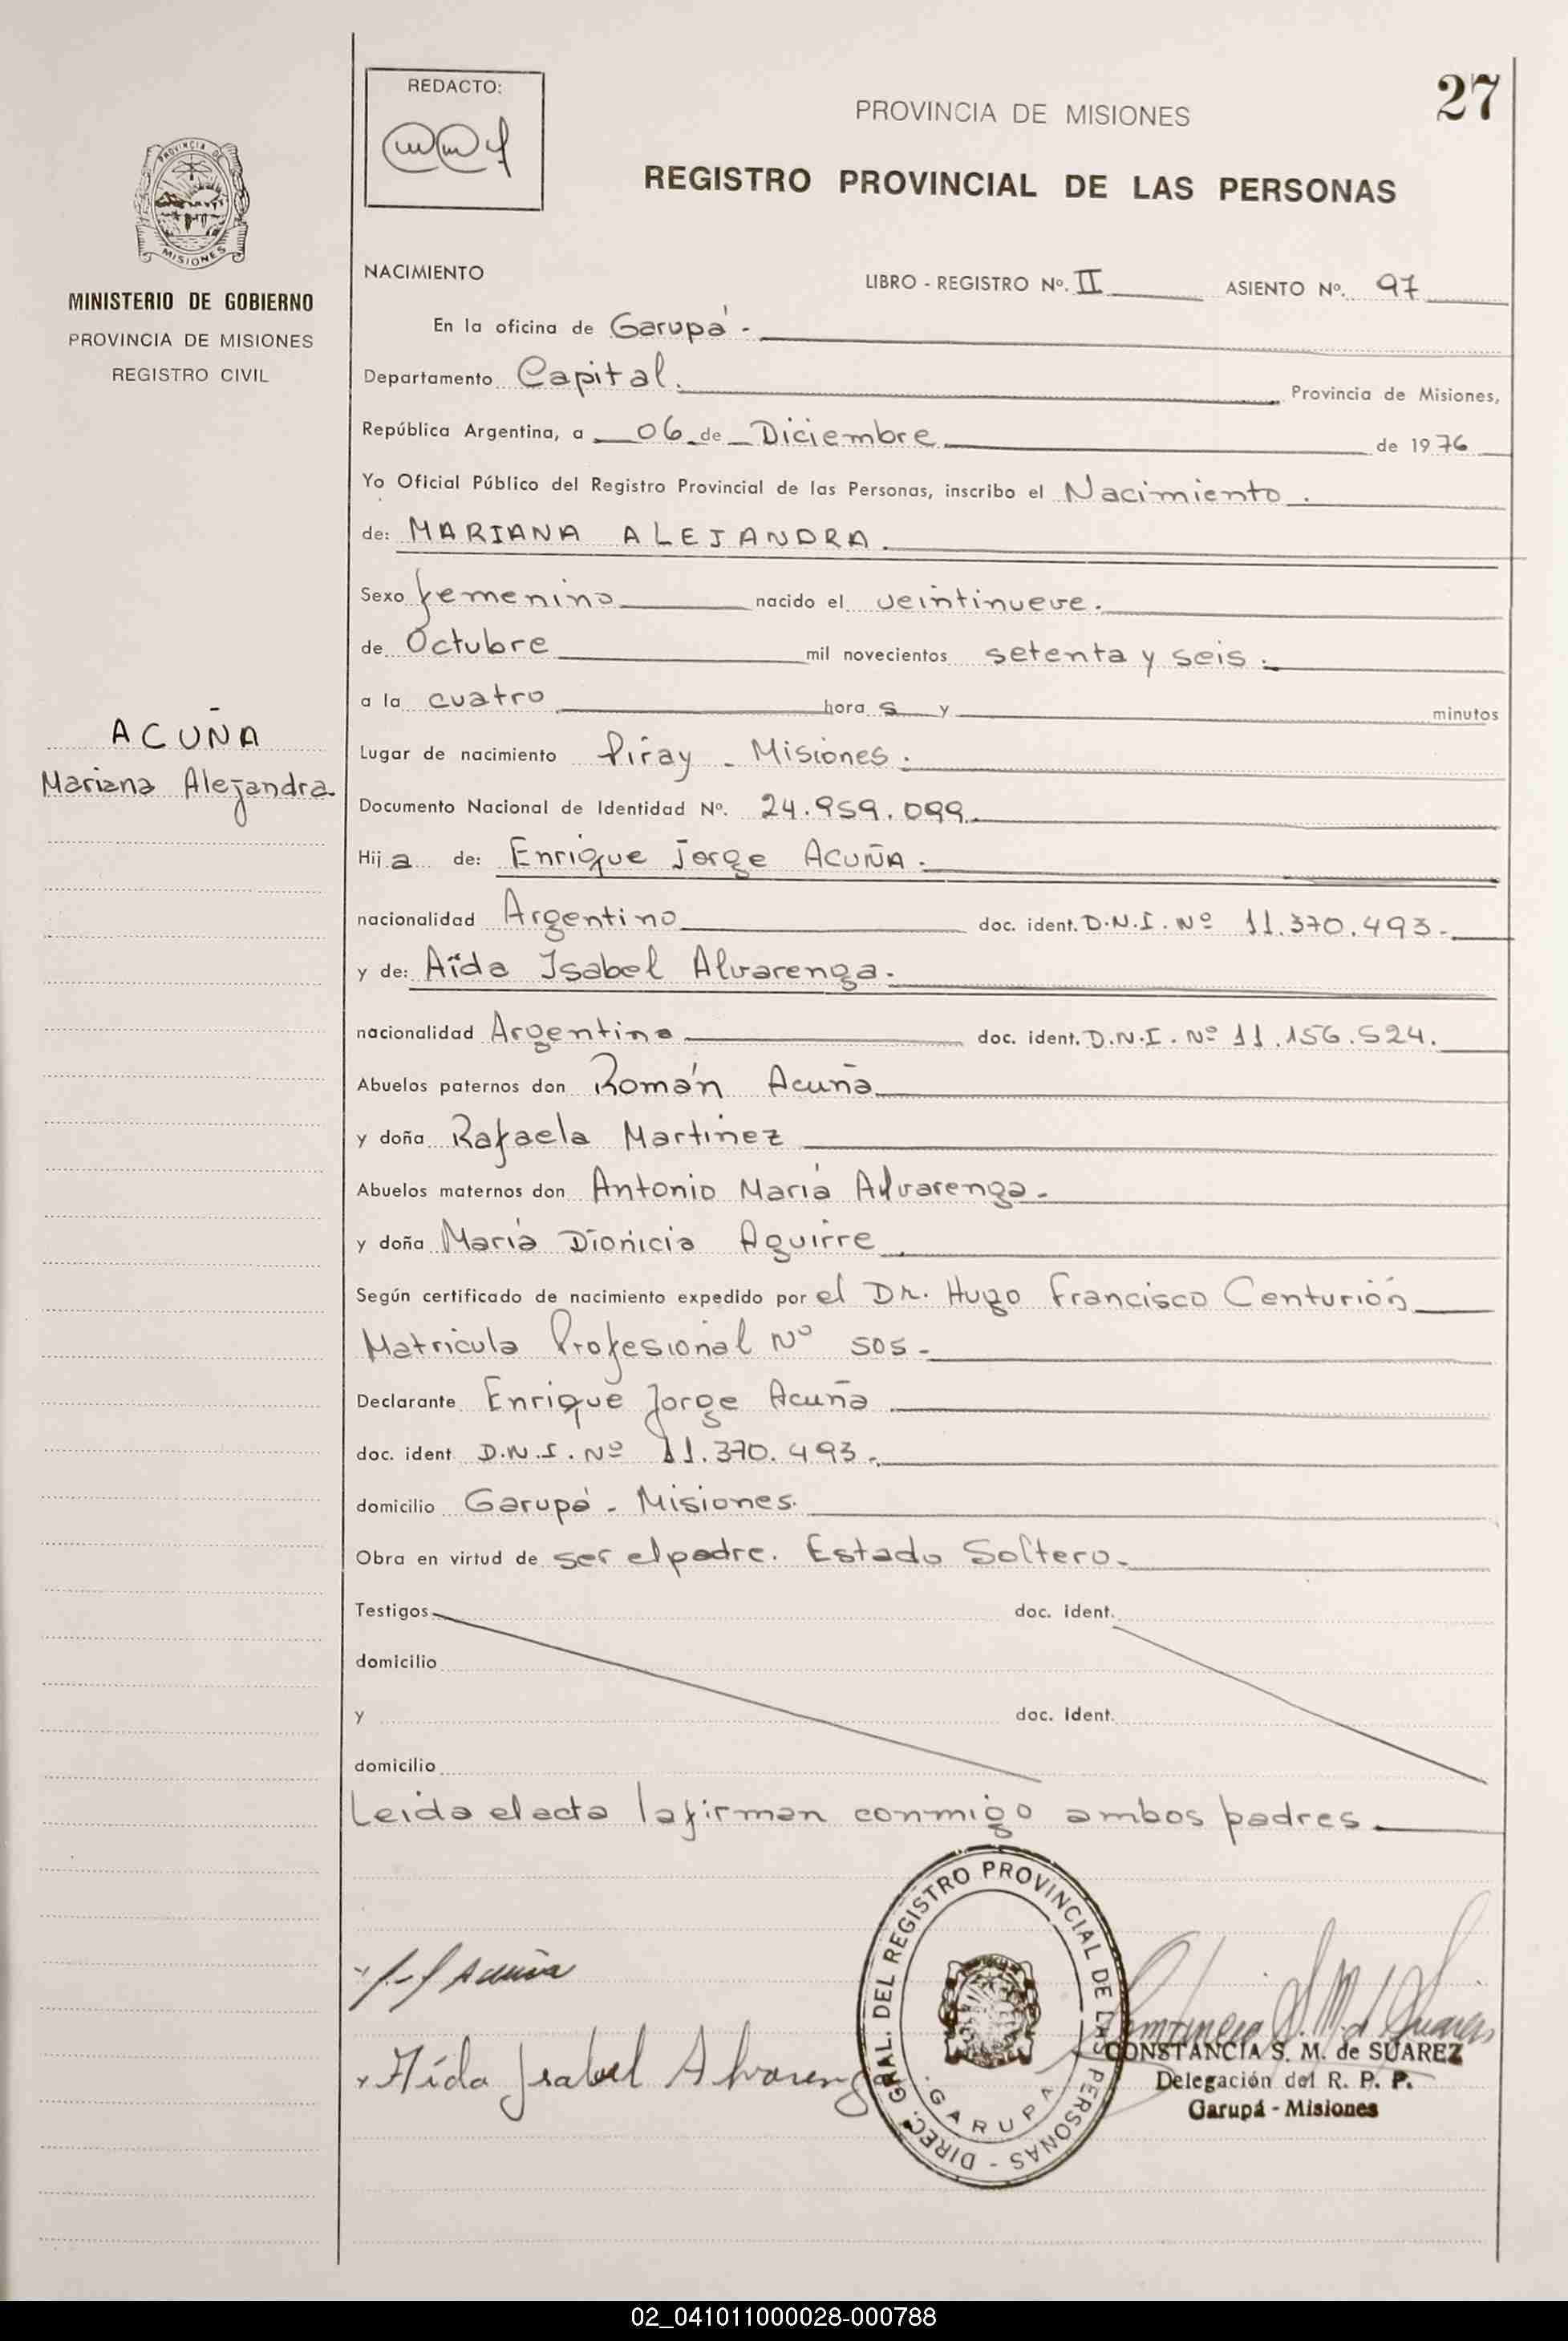 REDACTO:
27
PROVINCIA DE MISIONES
REGISTRO PROVINCIAL DE LAS PERSONAS
PROVINCIA DE
MISIONES
MINISTERIO DE GOBIERNO
PROVINCIA DE MISIONES
REGISTRO CIVIL
NACIMIENTO LIBRO - REGISTRO Nº. II ASIENTO Nº. 97
En la oficina de Garupá -
Departamento Capital. Provincia de Misiones,
República Argentina, a 06 de Diciembre de 1976
Yo Oficial Público del Registro Provincial de las Personas, inscribo el Nacimiento.
de: MARIANA ALEJANDRA.
Sexo femenino nacido el veintinueve.
de Octubre mil novecientos setenta y seis.
a la cuatro hora s y minutos
ACUÑA
Mariana Alejandra
Lugar de nacimiento Piray - Misiones.
Documento Nacional de Identidad Nº. 24.959.099.
Hij a de: Enrique Jorge ACUÑA.
nacionalidad Argentino doc. ident. D.N.I. Nº 11.370.493.-
y de: Aída Isabel Alvarenga.
nacionalidad Argentina doc. ident. D.N.I. Nº 11.156.524.
Abuelos paternos don Román Acuña
y doña Rafaela Martinez
Abuelos maternos don Antonio María Alvarenga.
y doña María Dionicia Aguirre
Según certificado de nacimiento expedido por el Dr. Hugo Francisco Centurión
Matricula Profesional Nº 505.-
Declarante Enrique Jorge Acuña
doc. ident D.N.I. Nº 11.370.493.
domicilio Garupá - Misiones.
Obra en virtud de ser el padre. Estado Soltero.
Testigos doc. ident.
domicilio
y doc. ident.
domicilio
Leida el acta la firman conmigo ambos padres.
Acuña
Aída Isabel Alvarenga
DIREC. GRAL. DEL REGISTRO PROVINCIAL DE LAS PERSONAS -
GARUPA
Constancia S. M. d Suarez
CONSTANCIA S. M. de SUAREZ
Delegación del R. P. P.
Garupá - Misiones
02_041011000028-000788